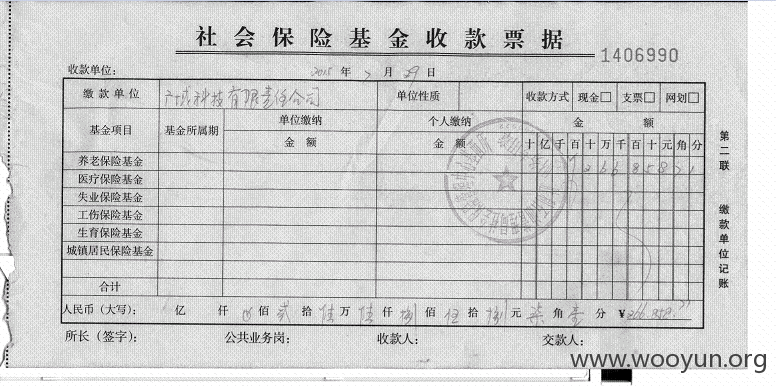 社会保险基金收款票据
1406990
收款单位: 2015 年 7 月 29 日
缴款单位 科技有限责任公司 单位性质 收款方式 现金□ 支票□ 网划□
基金项目 基金所属期 单位缴纳 个人缴纳 金 额
金 额 金 额 十 亿 千 百 十 万 千 百 十 元 角 分
养老保险基金 2 6 6 8 5 8 7 1
医疗保险基金
失业保险基金
工伤保险基金
生育保险基金
城镇居民保险基金
合计
人民币（大写）: 亿 仟 佰 贰 拾 陆 万 陆 仟 捌 佰 伍 拾 捌 元 柒 角 壹 分 ¥266,858.71
所长（签字）: 公共业务岗: 收款人: 交款人:
第二联 缴款单位记账
www.wooyun.org